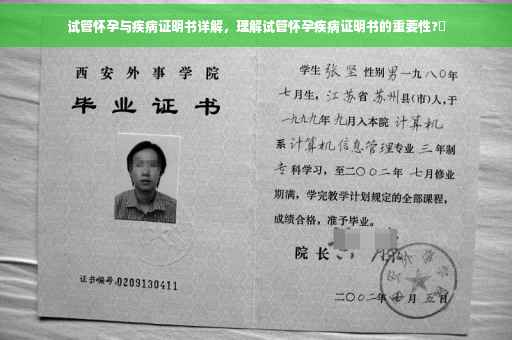 试管怀孕与疾病证明书详解，理解试管怀孕疾病证明书的重要性?
西安外事学院
毕业证书
证书编号:0209130411
学生 张坚 性别 男 一九八〇年
七月生，江苏省 苏州县(市)人，于
一九九九年 九月入本院 计算机
系 计算机信息管理专业 三 年制
专 科学习，至二〇〇二年 七月修业
期满，学完教学计划规定的全部课程，
成绩合格，准予毕业。
院长
二〇〇二年 月 五 日